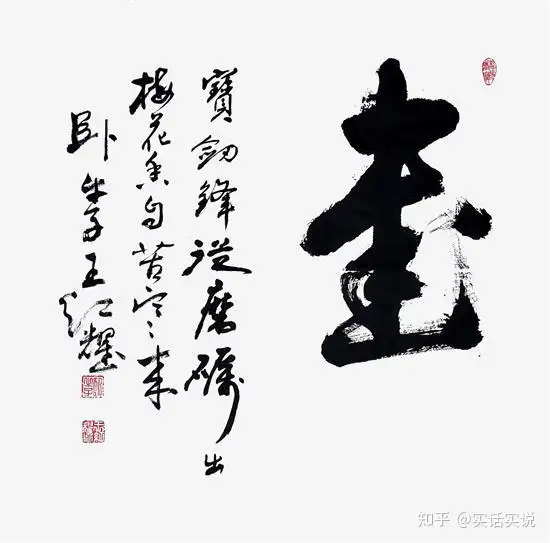 寶劍鋒從磨礪出
梅花香自苦寒来
卧牛子王红耀
知乎 @实话实说